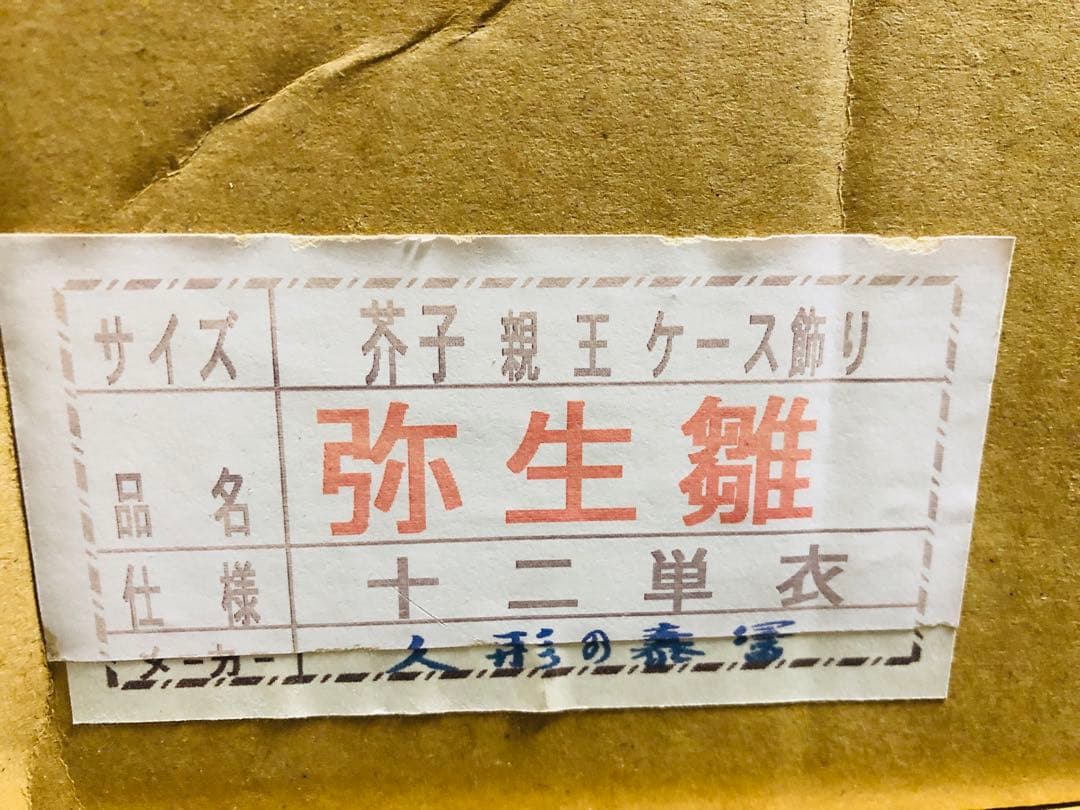 サイズ 芥子 親王 ケース飾り
品名 弥生雛
仕様 十二単衣
メーカー 人形の秦宝